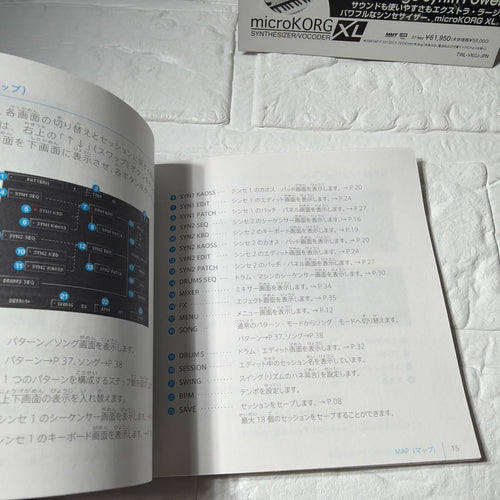 サウンドも使いやすさもエクストラ・ラージ
パワフルなシンセサイザー、microKORG XL
microKORG XL
SYNTHESIZER/VOCODER
37 key ¥61,950(本体価格¥59,000)
マップ)
各画面の切り替えとセッションに
は、右上の「↑↓」(スワップ
画面を下画面に表示させ、各ボタンを
PATTERN1
SYN1 SEQ
SYN1 KBD
SYN2 SEQ
SYN2 KBD
SYN2 KAOSS
SYN2 EDIT
SYN2 PATCH
DRUMS SEQ
パターン/ソング画面を表示します。
パターン→P.37、ソング→P.38
1つのパターンを構成するステップ数を
上下画面の表示を入れ替えます。
シンセ1のシーケンサー画面を表示します。
シンセ1のキーボード画面を表示します。
SYN1 KAOSS シンセ1のカオス・パッド画面を表示します。→P.20
SYN1 EDIT シンセ1のエディット画面を表示します。→P.24
SYN1 PATCH シンセ1のパッチ・パネル画面を表示します。→P.27
SYN2 SEQ シンセ2のシーケンサー画面を表示します。→P.16
SYN2 KBD シンセ2のキーボード画面を表示します。→P.19
SYN2 KAOSS シンセ2のカオス・パッド画面を表示します。→P.20
SYN2 EDIT シンセ2のエディット画面を表示します。→P.24
SYN2 PATCH シンセ2のパッチ・パネル画面を表示します。→P.27
DRUMS SEQ ドラム・マシンのシーケンサー画面を表示します。→P.30
MIXER ミキサー画面を表示します。→P.34
FX エフェクト画面を表示します。→P.35
MENU メニュー画面を表示します。→P.12
SONG 通常のパターン・モードからソング・モードへ切り替えます。
パターン→P.37、ソング→P.38
DRUMS ドラム・エディット画面を表示します。→P.32
SESSION エディット中のセッション名を表示しています。
SWING スイング(リズムのハネ具合)を設定します。
BPM テンポを設定します。
SAVE セッションをセーブします。→P.08
最大18個のセッションをセーブすることができます。
MAP (マップ) 15